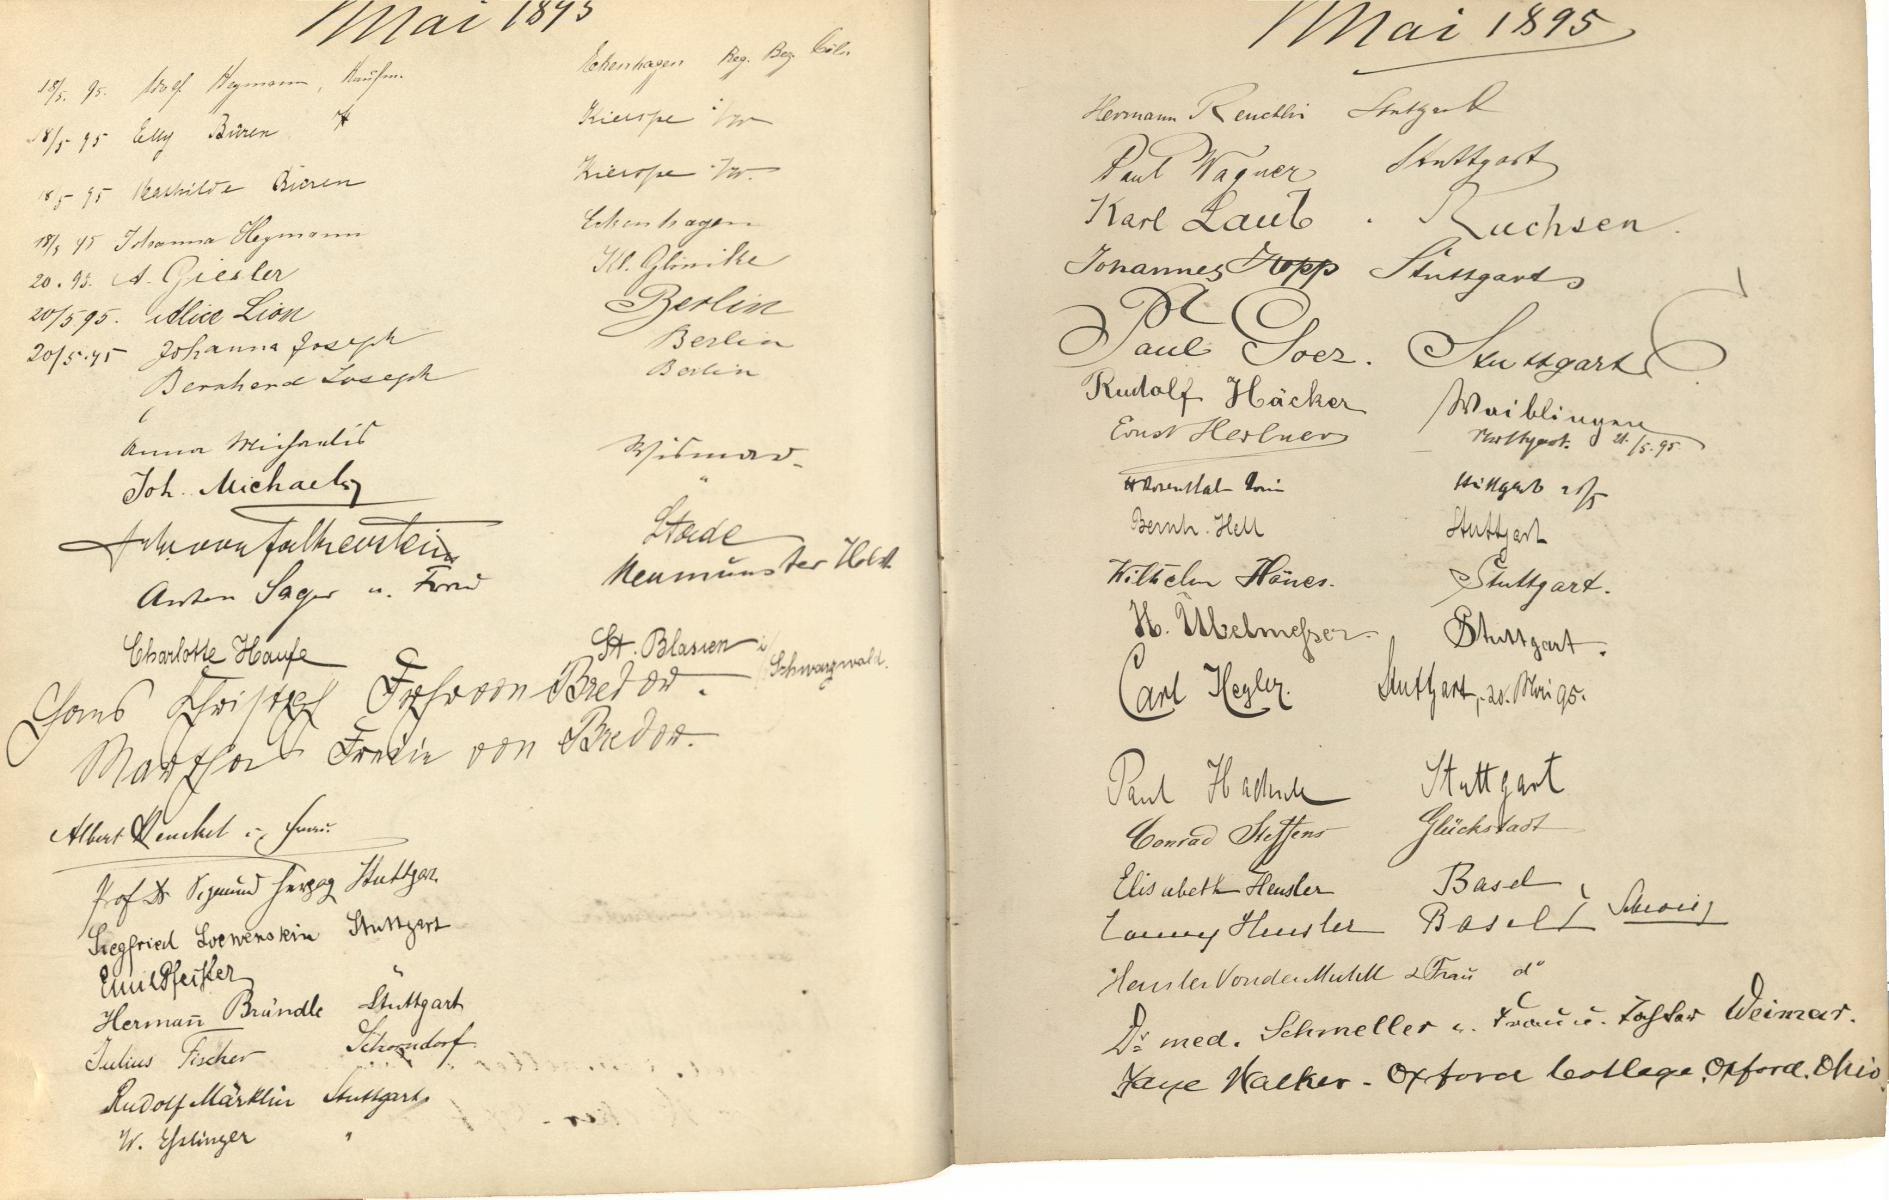 Mai 1895
18/5. 95. Adolf Heymann, Kaufm. Eckenhagen Reg. Bez. Cöln
18/5 95 Elly Büren Kierspe i/W
18/5 95 Mathilde Büren Kierspe i/W.
18/5 95 Johanna Heymann Eckenhagen
20. 95. A. Giesler Kl. Glinike
20/5 95. Alice Lion Berlin
20/5. 95 Johanna Joseph Berlin
Bernhard Joseph Berlin
Anna Michaelis Wismar.
Joh. Michaelis "
Frhr von Falkenstein Stade
Anton Sager u. Frau Neumünster Holst.
Charlotte Haufe St. Blasien i/ Schwarzwald.
Hans Christoph Freiherr von Bredow.
Martha Freiin von Bredow.
Albert Henckel u. Frau.
Prof Dr Sigmund Herzog Stuttgart
Siegfried Loewenstein Stuttgart
Emil Pfeiffer "
Hermann Brändle Stuttgart
Julius Fischer Schorndorf
Rudolf Märklin Stuttgart
W. Eßlinger "
Mai 1895
Hermann Reuchlin Stuttgart
Paul Wagner Stuttgart
Karl Laub. Ruchsen.
Johannes Kopp Stuttgart
Paul Goez. Stuttgart
Rudolf Häcker Waiblingen
Ernst Stuttgart. 21./5. 95
Rosenthal Stuttgart 21/5
Bernh. Hell Stuttgart
Wilhelm Hänes. Stuttgart.
H. Übelmesser. Stuttgart.
Carl Hegler. Stuttgart, 20. Mai 95.
Paul Stuttgart
Conrad Steffens Glückstadt
Elisabeth Heusler Basel
Fanny Heusler Basel Schweiz
Heusler VonderMühll & Frau do
Dr. med. Schmeller u. Frau u. Tochter Weimar.
Faye Walker - Oxford College, Oxford, Ohio.